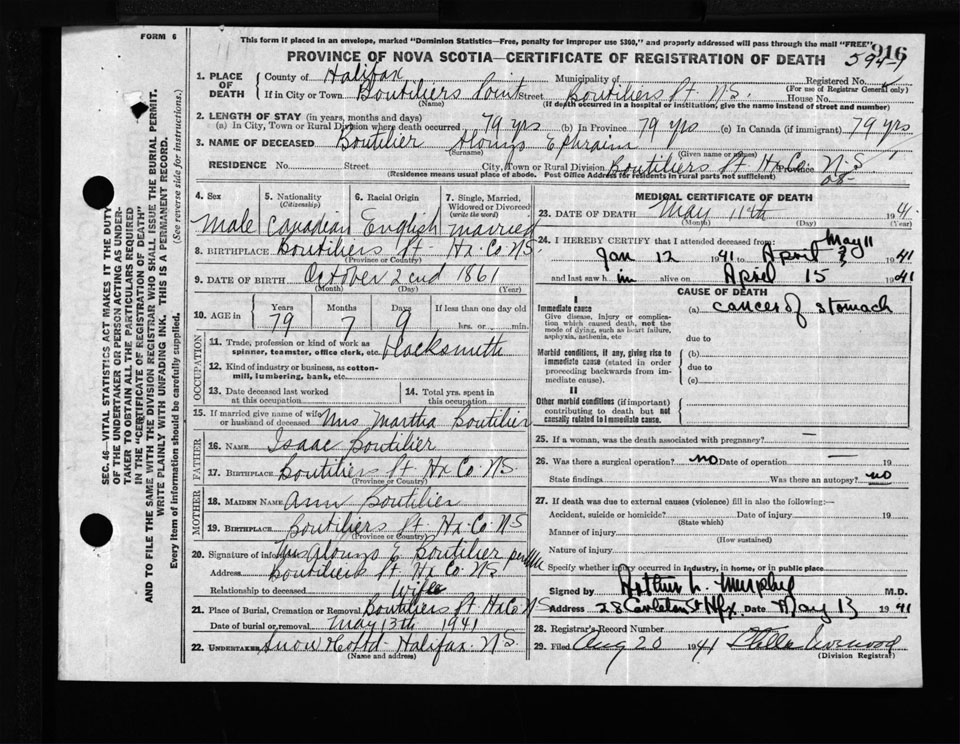 FORM 6
This form if placed in an envelope, marked "Dominion Statistics—Free, penalty for improper use $300," and properly addressed will pass through the mail "FREE"
916
PROVINCE OF NOVA SCOTIA—CERTIFICATE OF REGISTRATION OF DEATH
594-1
1. PLACE OF DEATH County of Halifax Municipality of Registered No.
(For use of Registrar General only)
If in City or Town Boutiliers Point Street Boutiliers Pt. N.S. House No.
(Name) (If death occurred in a hospital or institution, give the name instead of street and number)
2. LENGTH OF STAY (in years, months and days)
(a) In City, Town or Rural Division where death occurred 79 yrs (b) In Province 79 yrs (c) In Canada (if immigrant) 79 yrs
3. NAME OF DECEASED Boutilier Alonzo Ephraim
(Surname) (Given name or names)
RESIDENCE No. Street City, Town or Rural Division Boutiliers Pt Hx Co. Province N.S
(Residence means usual place of abode. Post Office Address for residents in rural parts not sufficient)
4. Sex 5. Nationality (Citizenship) 6. Racial Origin 7. Single, Married, Widowed or Divorced (write the word)
Male Canadian English married
8. BIRTHPLACE Boutiliers Pt Hx. Co N.S.
(Province or Country)
9. DATE OF BIRTH October 2cnd 1861
(Month) (Day) (Year)
10. AGE in Years Months Days If less than one day old
79 7 9 hrs. or min.
OCCUPATION
11. Trade, profession or kind of work as spinner, teamster, office clerk, etc. Blacksmith
12. Kind of industry or business, as cotton-mill, lumbering, bank, etc.
13. Date deceased last worked at this occupation 14. Total yrs. spent in this occupation
15. If married give name of wife or husband of deceased Mrs Martha Boutilier
FATHER
16. NAME Isaac Boutilier
17. BIRTHPLACE Boutiliers Pt Hx Co N.S.
(Province or Country)
MOTHER
18. MAIDEN NAME Ann Boutilier
19. BIRTHPLACE Boutiliers Pt. Hx. Co. N S
(Province or Country)
20. Signature of informant Mrs Alonzo E Boutilier per
Address Boutiliers Pt Hx Co. N.S
Relationship to deceased Wife
21. Place of Burial, Cremation or Removal Boutiliers Pt Hx Co N S
Date of burial or removal May 13th 1941
22. UNDERTAKER Snow Halifax. N.S.
(Name and address)
MEDICAL CERTIFICATE OF DEATH
23. DATE OF DEATH May 11th 1941
(Month) (Day) (Year)
24. I HEREBY CERTIFY that I attended deceased from:
May 11
Jan 12 1941 to April 1941
and last saw him alive on April 15 1941
CAUSE OF DEATH
I
Immediate cause (a) cancer of stomach
Give disease, injury or complication which caused death, not the mode of dying, such as heart failure, asphyxia, asthenia, etc
due to
Morbid conditions, if any, giving rise to immediate cause (stated in order proceeding backwards from immediate cause).
(b)
due to
(c)
II
Other morbid conditions (if important) contributing to death but not causally related to immediate cause.
25. If a woman, was the death associated with pregnancy? —
26. Was there a surgical operation? no Date of operation — 19
State findings Was there an autopsy? no
27. If death was due to external causes (violence) fill in also the following:—
Accident, suicide or homicide? Date of injury 19
(State which)
Manner of injury
(How sustained)
Nature of injury
Specify whether injury occurred in industry, in home, or in public place
Signed by Arthur L. Murphy M.D.
Address 28 Carleton St Hfx. Date May 13 1941
28. Registrar's Record Number
29. Filed Aug 20 1941 Stella
(Division Registrar)
SEC. 46—VITAL STATISTICS ACT MAKES IT THE DUTY
OF THE UNDERTAKER OR PERSON ACTING AS UNDER-
TAKER TO OBTAIN ALL THE PARTICULARS REQUIRED
IN THE "CERTIFICATE OF REGISTRATION OF DEATH"
AND TO FILE THE SAME WITH THE DIVISION REGISTRAR WHO SHALL ISSUE THE BURIAL PERMIT.
WRITE PLAINLY WITH UNFADING INK. THIS IS A PERMANENT RECORD.
Every item of information should be carefully supplied. (See reverse side for instructions.)